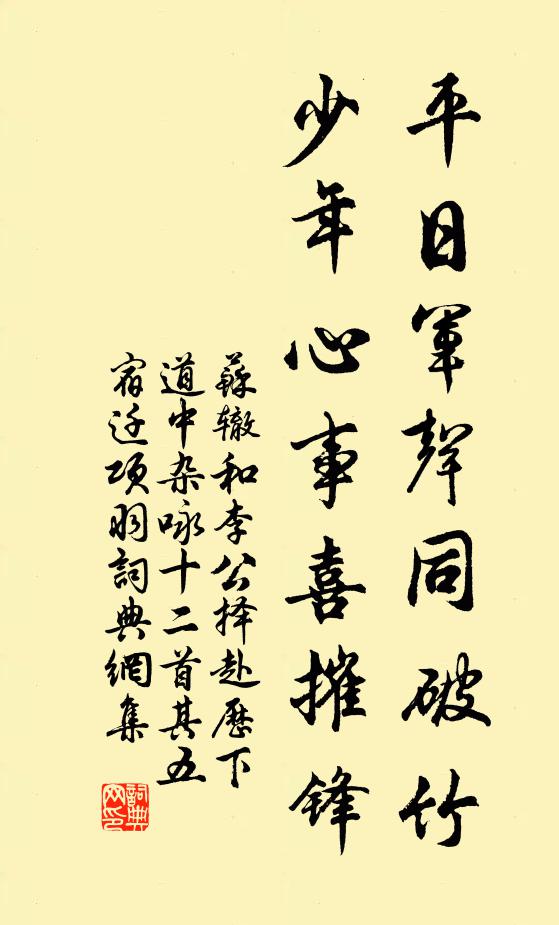 平日軍聲同破竹
少年心事喜摧锋
蘇辙和李公择赴歷下
道中杂咏十二首其五
宿迁项羽詞典網集
詞典網印